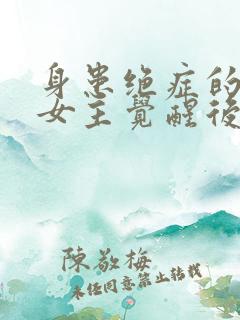 身患绝症的
女主覺醒後
陳敬梅
未经同意禁止转载